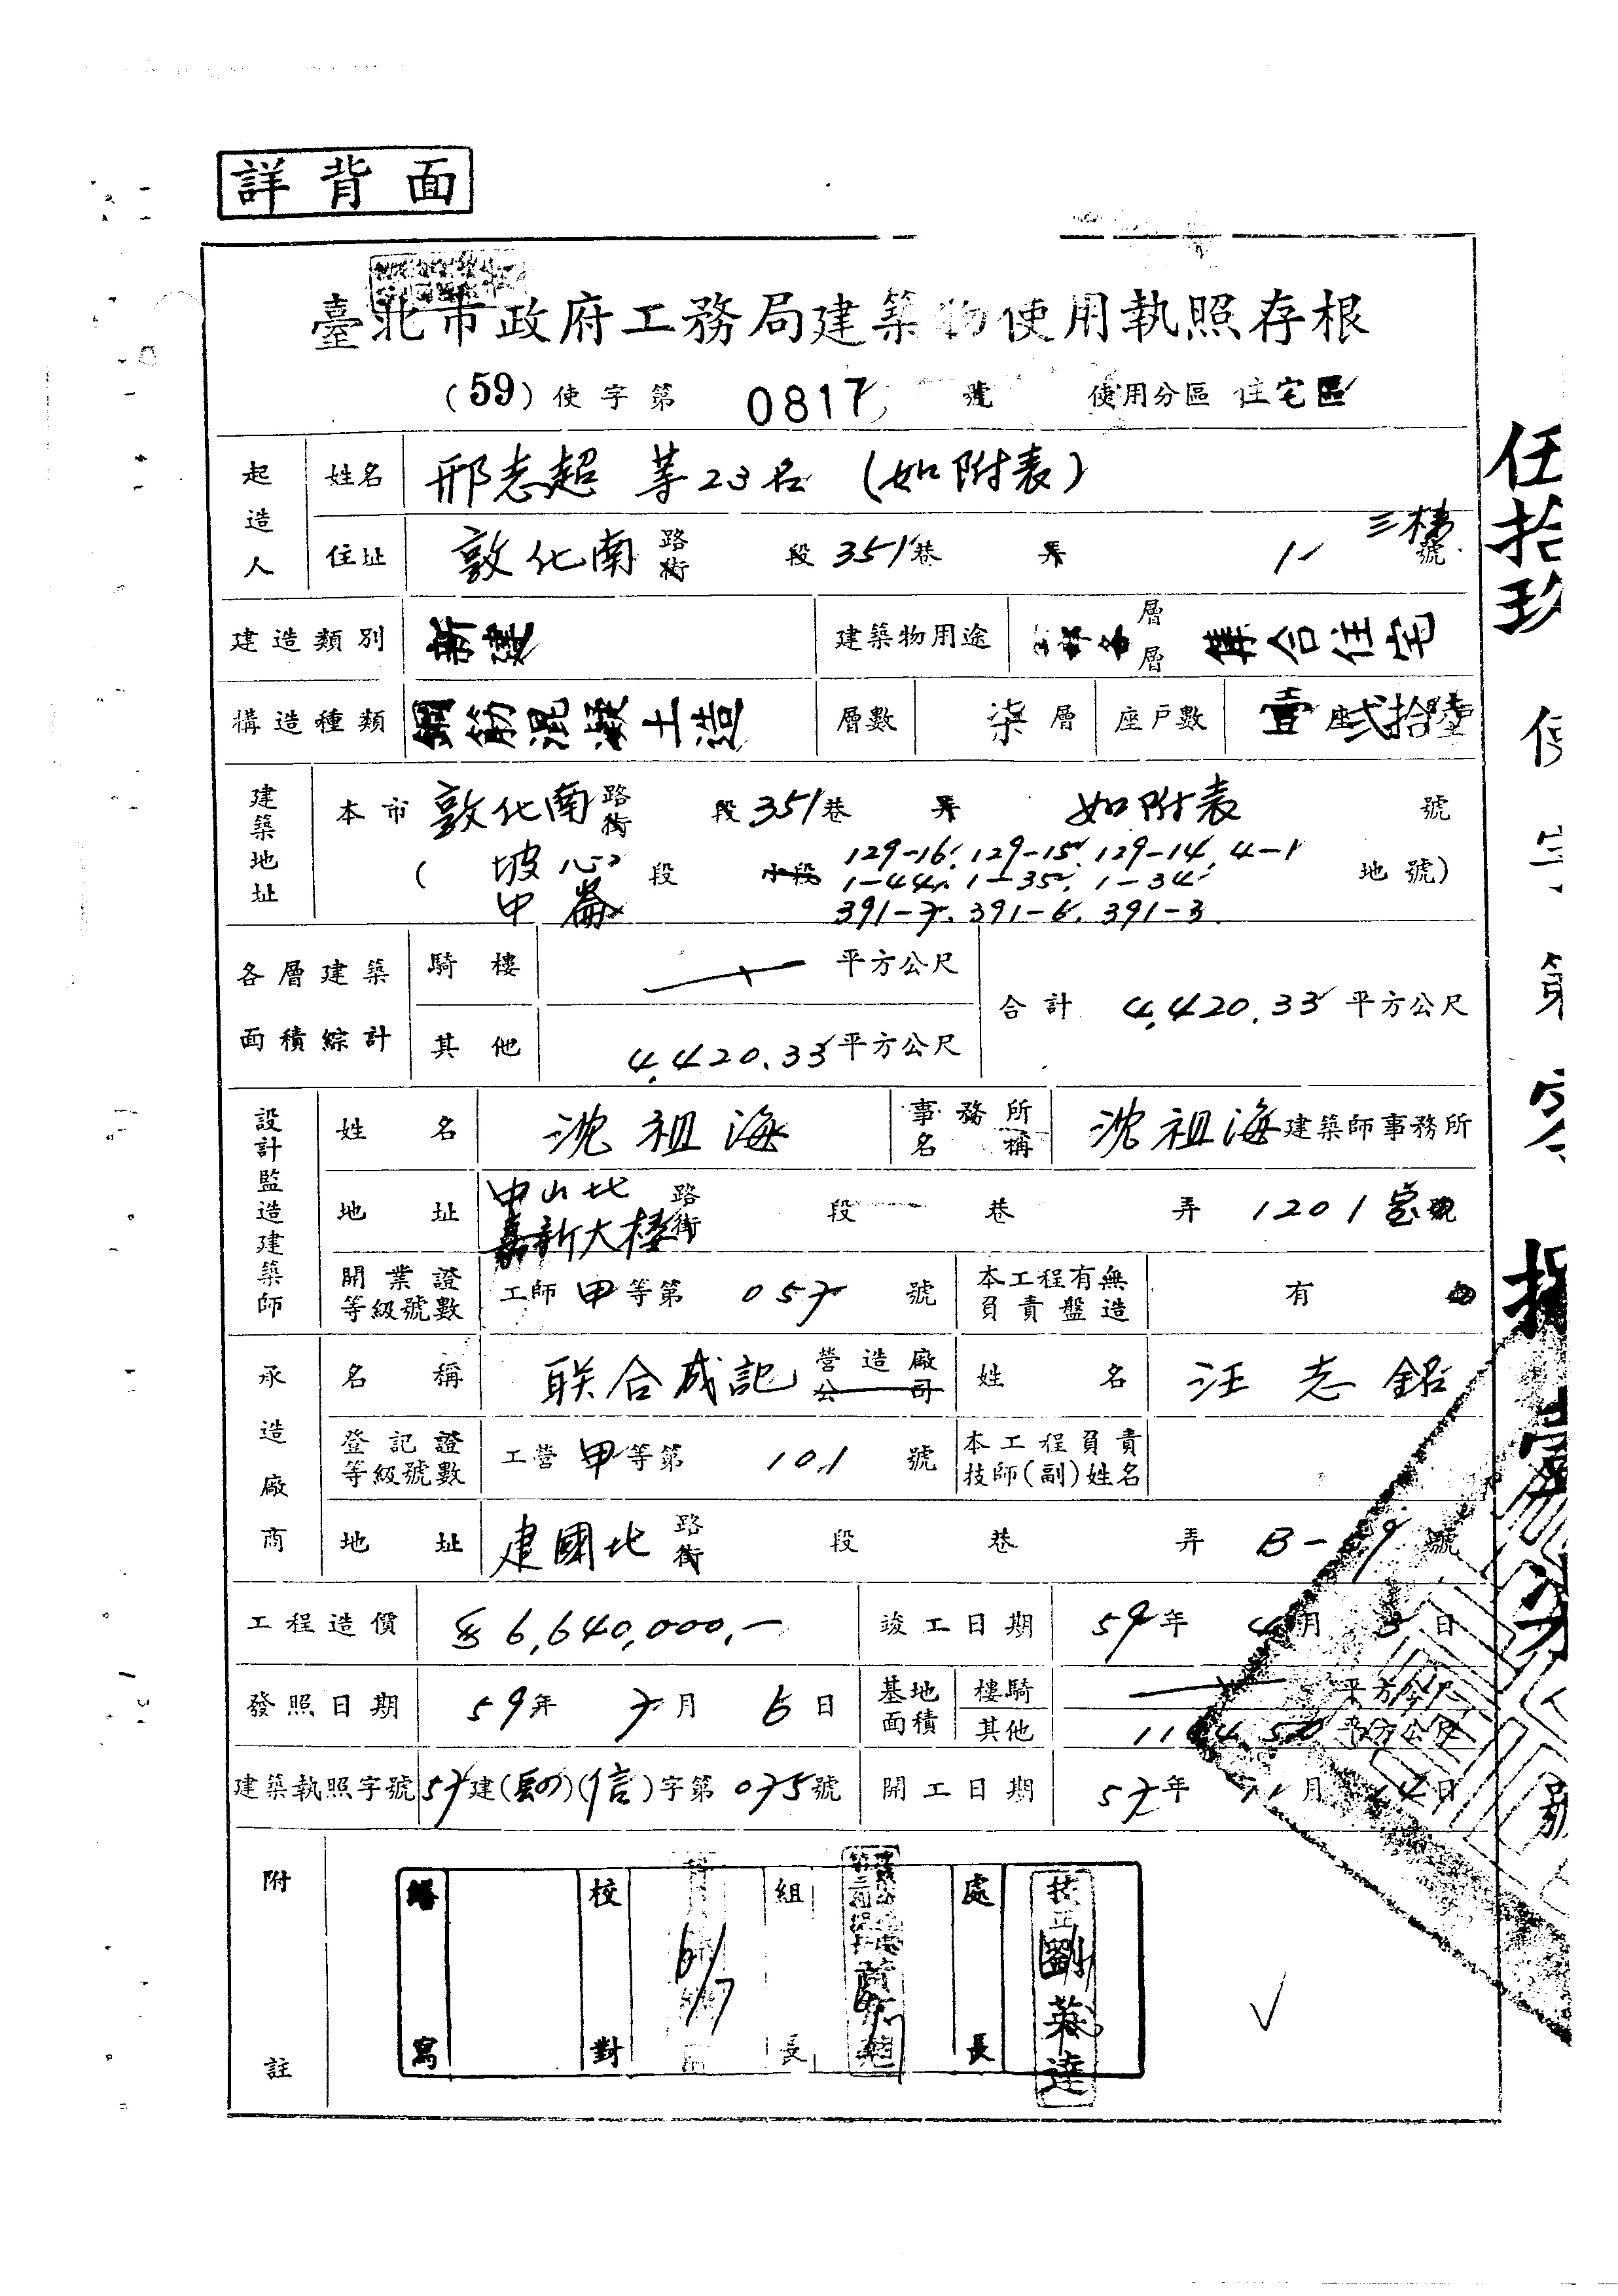 詳背面
臺北市政府工務局建築物使用執照存根
(59)使字第 0817 號 使用分區 住宅區
起造人 姓名 邢志超 等23名 (如附表)
住址 敦化南 路街 段 351巷 弄 1- 三樓 號
建造類別 新建 建築物用途 層層 集合住宅
構造種類 鋼筋混凝土造 層數 柒層 座戶數 壹座弍拾陸戶
建築地址 本市 敦化南 路街 段 351巷 弄 如附表 號
( 坡心 段 小段 129-16. 129-15. 129-14. 4-1 地號)
1-44. 1-35. 1-34
中崙 391-7. 391-6. 391-3
各層建築面積綜計 騎樓 平方公尺 合計 4,420.33 平方公尺
其他 4,420.33 平方公尺
設計監造建築師 姓名 沈祖海 事務所名稱 沈祖海建築師事務所
地址 中山北 路街 段 巷 弄 1201室 號
嘉新大樓
開業證等級號數 工師 甲 等第 057 號 本工程有無負責監造 有
承造廠商 名稱 联合成記 營造廠公司 姓名 汪志銘
登記證等級號數 工營 甲 等第 101 號 本工程負責技師(副)姓名
地址 建國北 路街 段 巷 弄 B-59 號
工程造價 6,640,000.- 竣工日期 59年 4月 日
發照日期 59年 7月 6日 基地面積 樓騎 平方公尺
其他 平方公尺
建築執照字號 57建()(信)字第075號 開工日期 57年 11月 14日
附註 繕寫 校對 6/7 組長 處長 技正 劉英達
伍拾玖 使 字 第 零 捌 壹 柒 號